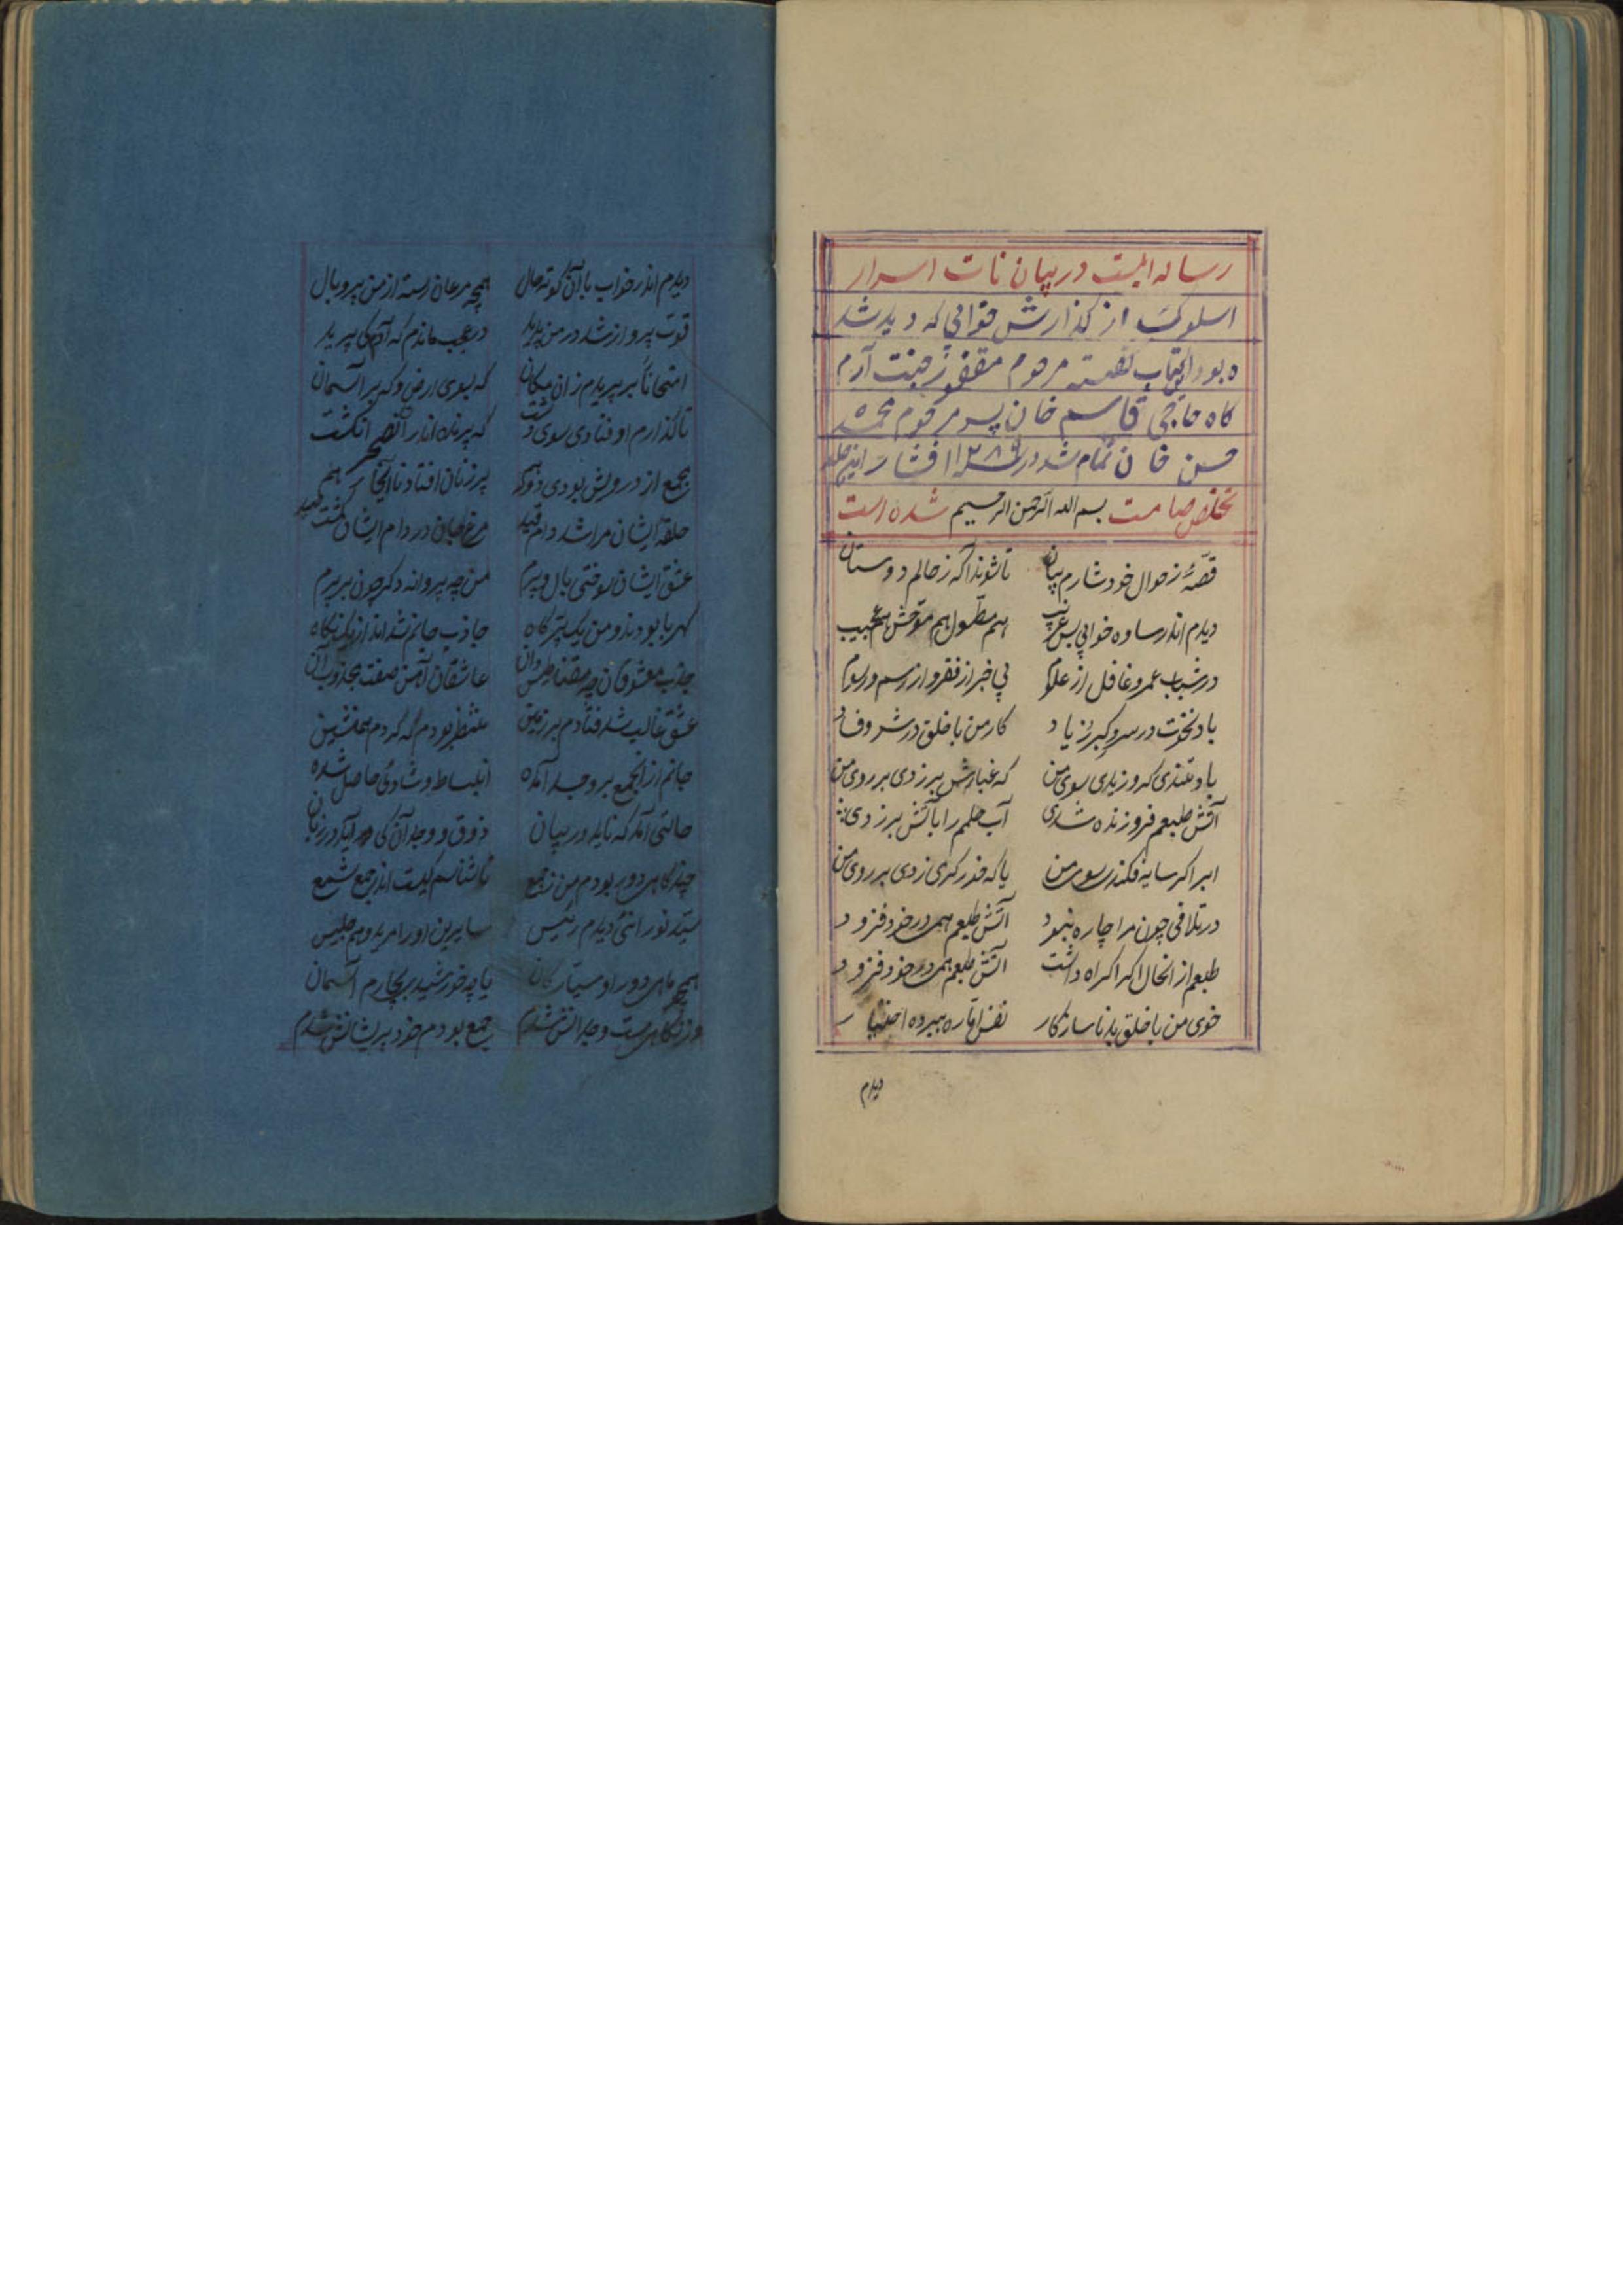 رساله ایست در بیان نات اسرار
اسلوک از گذارش خوابی که دیده شد
ه بود و اینکتاب گفته مرحوم مغفور جنت آرم
گاه حاجی قاسم خان پسر مرحوم محمد
حسن خان تمام شد در ۱۲۸۹ افشار
تخلص صامت بسم الله الرحمن الرحیم شده است
قصهٔ ز حوال خود شارم بیان تا شوند اگه ز حالم دوستان
دیدم اندر ساوه خوابی بس غریب هم مطول هم موحش هم عجیب
در شباب عمر و غافل از علوم بی خبر از فقر و از رسم و رسوم
باد نخوت در سر و کبر زیاد کار من با خلق در شر و فساد
باد تندی کر وزیدی سوی من که غبارش برزدی بر روی من
آتش طبعم فروزنده شدی آب حلمم را باتش برزدی
ابر اکر سایه فکندی سوی من یا که خدر کری زدی بر روی من
در تلافی چون مرا چاره نبود آتش طبعم همی در خود فزود
طبعم از انحال اکر اکراه داشت اتش طبعم همی در خود فزود
خوی من با خلق بد ناسازکار نفس اماره ببرده اختیار
دیدم
دیدم اندر خواب با آن کوته حال همچه مرغان رسته از من پر و بال
قوت پرواز شد در من پدید در عجب ماندم که آدم کی پرید
امتحاناً بر پریدم زان مکان که بسوی ارض و که بر آسمان
تا گذارم اوفتادی سوی دشت که پرنده اندر آنصحرا نکشت
جمع از درویش بودی ذوکر پر زنان افتادنا آنجا هم
حلقه ایشان مرا شد دام قید مرغ جان در دام ایشان گشت صید
عشق ایشان سوختی بال و پرم من چه پروانه دکر چون بر پرم
کهربا بودند و من یک پر کاه جاذب جانم شدند از یک نگاه
جذب معشوقان چه مقناطیس دان عاشقان آهن صفت مجذوب آن
عشق غالب شد فتادم بر زمین منتظر بودم که کردم همنشین
جانم از آنجمع بر وجد آمده انبساط و شادی حاصل شده
حالتی آمد که ناید در بیان ذوق و وجد آن کی آید در زبان
چند کاهی دور بودم من ز جمع تا شناسم کیست اندر جمع شمع
سید نورانئی دیدم رئیس سایرین او را مرید و هم جلیس
همچو ماهی دور او سیارکان یا چه خورشید بچارم آسمان
از نکاهی مست و حیرانش شدم جمع بودم خود پریشانش شدم